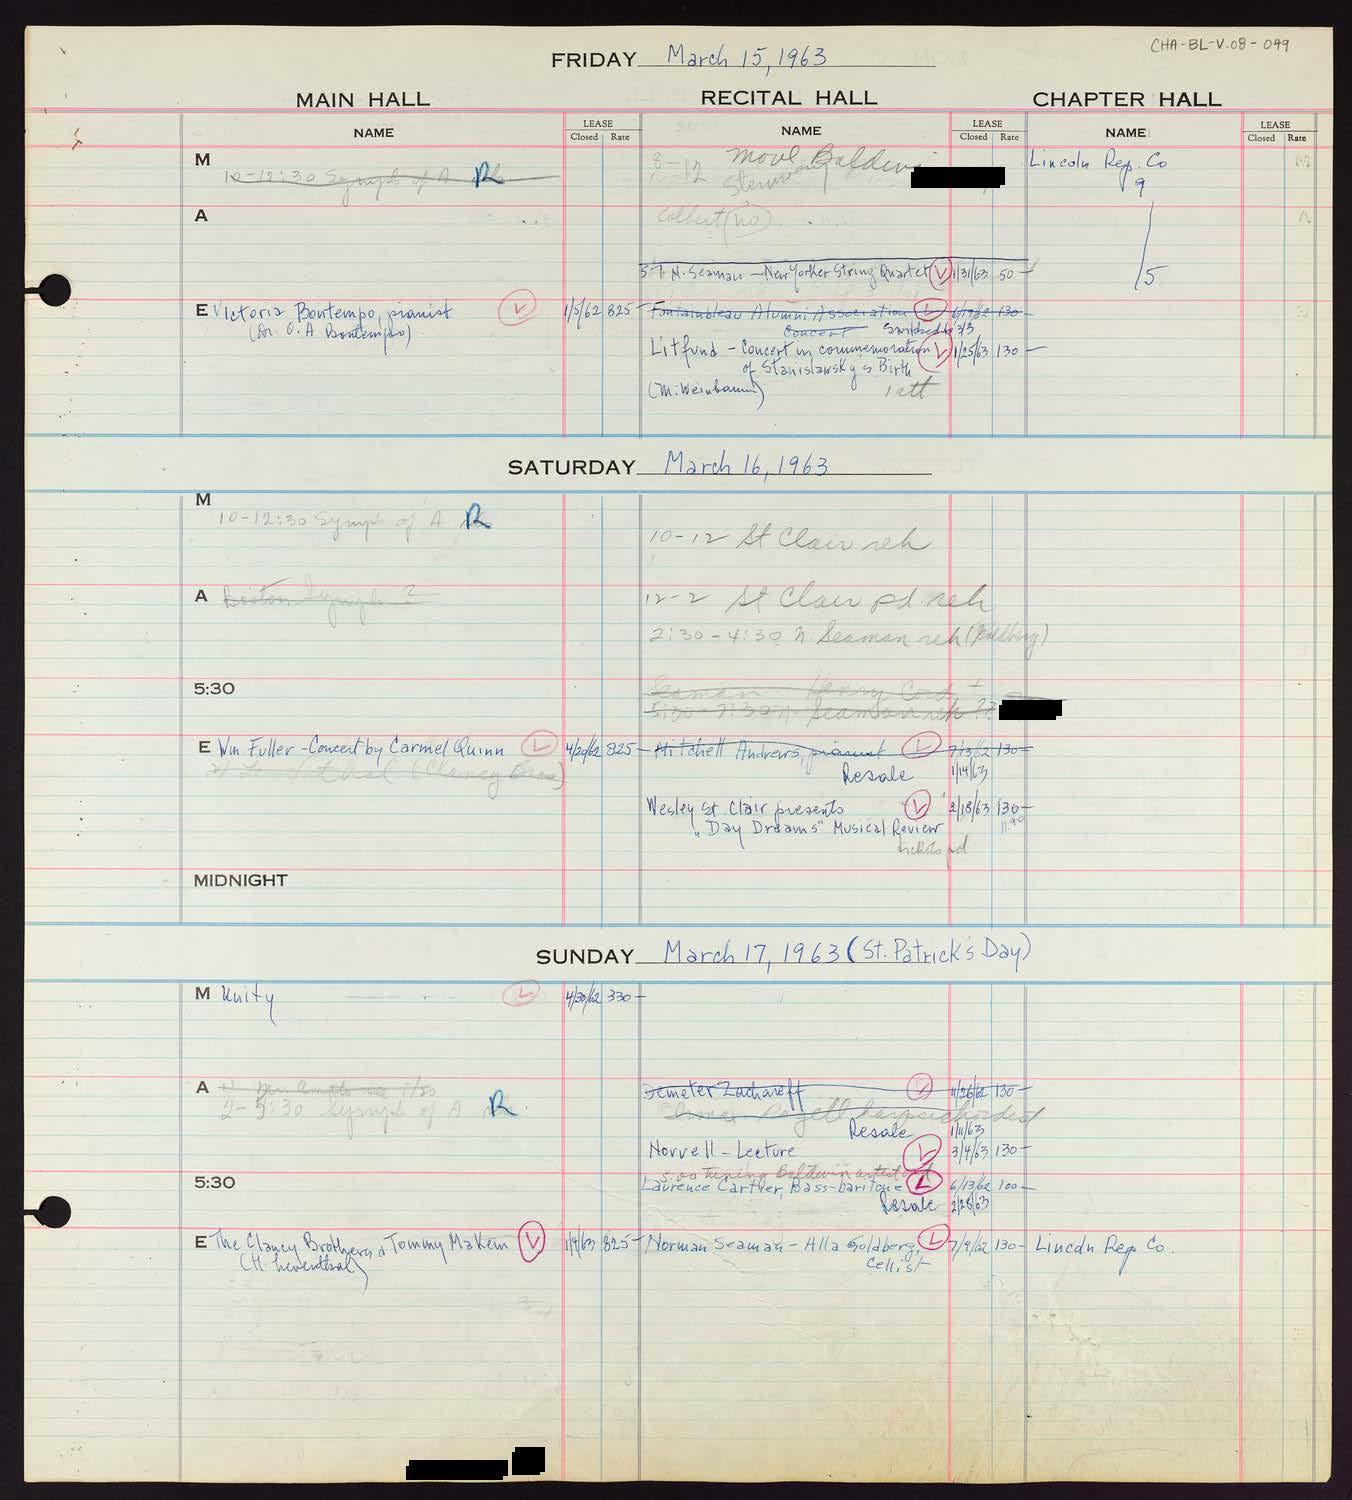 CHA-BL-V.08-049
FRIDAY March 15, 1963
MAIN HALL RECITAL HALL CHAPTER HALL
NAME LEASE Closed Rate NAME LEASE Closed Rate NAME LEASE Closed Rate
M 10-12:30 Symph of A R
8-12 Move Baldwin
Steinway
Lincoln Rep. Co
9
A
Collect (no)
5
57. N. Seaman - New Yorker String Quartet V 1/31/63 50-
E Victoria Bontempo, pianist V 1/5/62 825-
(Dr. O. A. Bontempo)
Fontainbleau Alumni Association L 6/19/62 130-
Concert Switched to 3/3
Litfund - Concert in commemoration V 1/25/63 130-
of Stanislawsky's Birth
(M. Weinbaum) 1 att
SATURDAY March 16, 1963
M
10-12:30 Symph of A R
10-12 St Clair reh
A Boston Symph ?
12-2 St Clair pd reh
2:30-4:30 N. Seaman reh (Goldberg)
5:30
Seaman Henry Cord
5:30-7:30 N. Seaman reh
E Wm Fuller - Concert by Carmel Quinn L 4/20/62 825-
(Clancy Bros)
Mitchell Andrews, pianist L 7/3/62 130-
Resale 1/14/63
Wesley St. Clair presents V 2/18/63 130-
"Day Dreams" Musical Review 11.90
tickets pd
MIDNIGHT
SUNDAY March 17, 1963 (St. Patrick's Day)
M Unity L 4/30/62 330-
A
2-5:30 Symph of A R
Demeter Zachareff V 11/26/62 130-
harpsichordist
Resale 1/11/63
Norvell - Lecture L 3/4/63 130-
5:00 Tuning Baldwin artist pd
5:30
Laurence Cartier, Bass-baritone L 6/13/62 100-
Resale 2/28/63
E The Clancy Brothers & Tommy Makem V 1/9/63 825-
(H. Leventhal)
Norman Seaman - Alla Goldberg, L 7/9/62 130-
Cellist
Lincoln Rep Co.